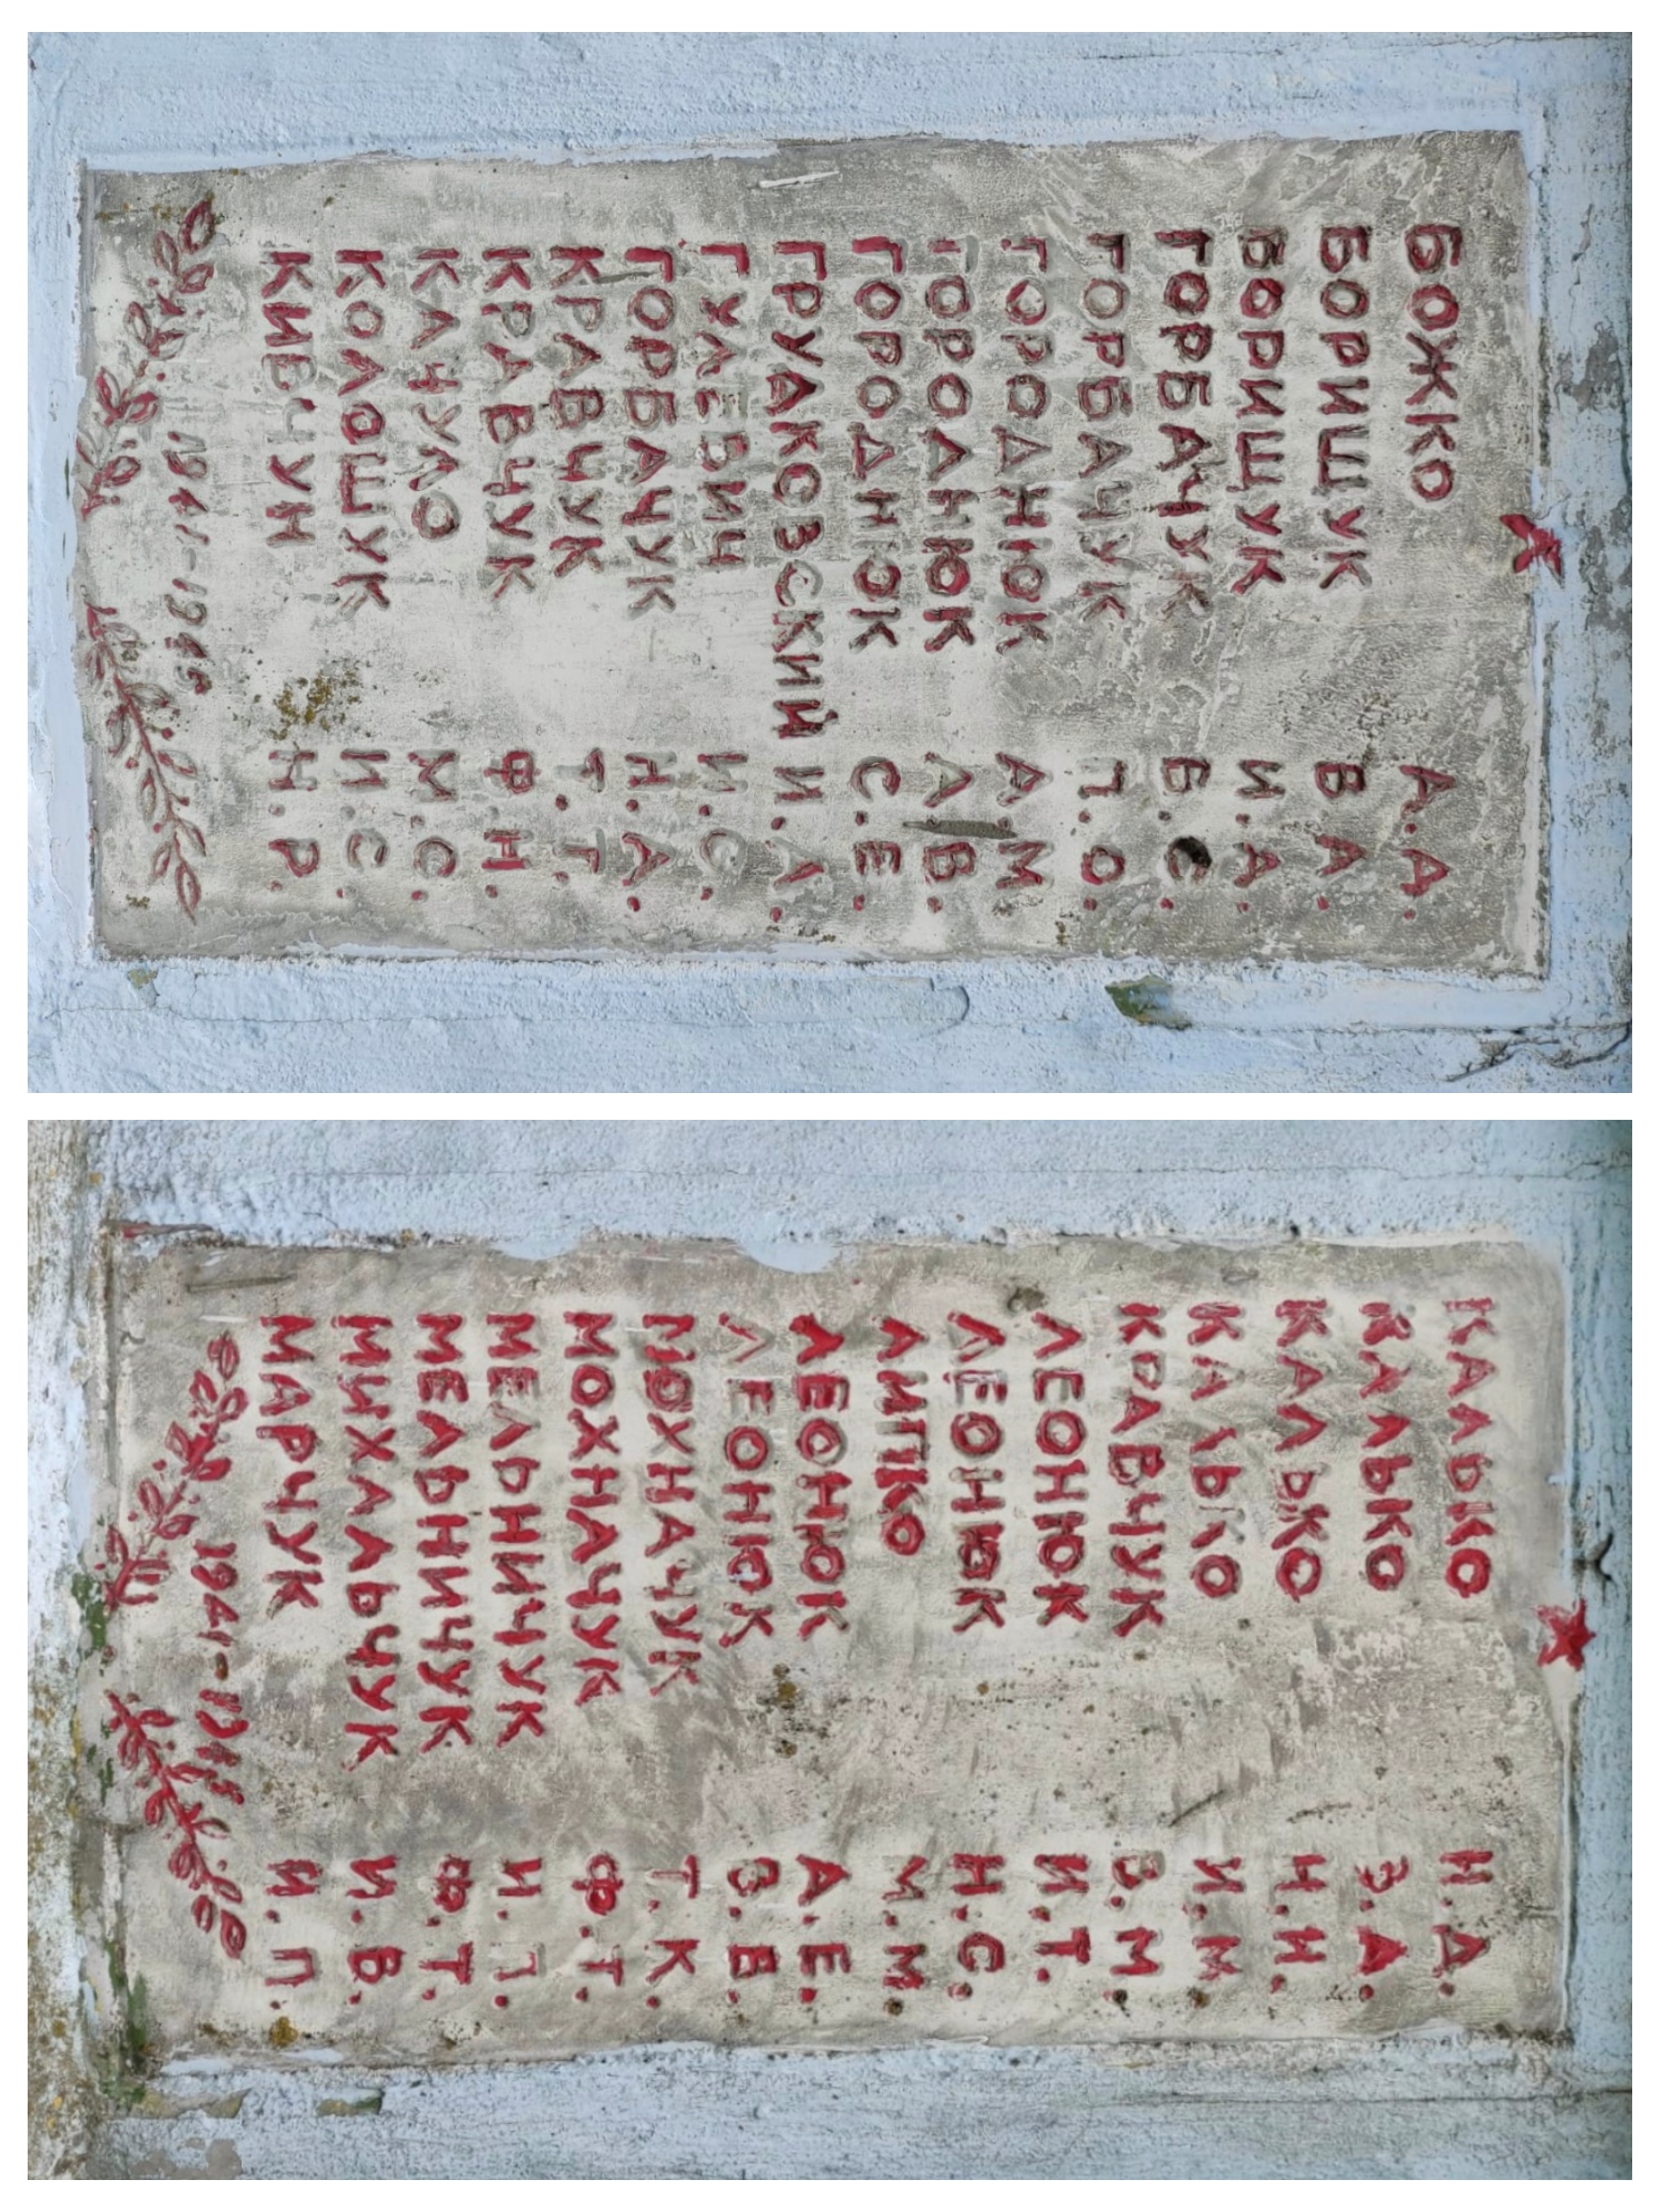 БОЖКО А.Д.
БОРИЩУК В.А.
БОРИЩУК И.А.
ГОРБАЧУК В.С.
ГОРБАЧУК П.О.
ГОРОДНЮК А.М.
ГОРОДНЮК А.В.
ГОРОДНЮК С.Е.
ГРУДКОВСКИЙ И.А.
ГУЛЕВИЧ И.С.
ГОРБАЧУК Н.А.
КРАВЧУК Т.Т.
КРАВЧУК Ф.Н.
КАЧУЛО М.С.
КОЛОШУК И.С.
КИВЧУН Н.Р.
1941-1945
КАЛЬКО Н.Д.
КАЛЬКО З.А.
КАЛЬКО
КАЛЬКО И.М.
КРАВЧУК В.М.
ЛЕОНЮК И.Т.
ЛЕОНЮК Н.С.
ЛИПКО М.М.
ЛЕОНЮК А.Е.
ЛЕОНЮК
МОХНАЧУК Т.К.
МОХНАЧУК Ф.Т.
МЕЛЬНИЧУК И.П.
МЕЛЬНИЧУК Ф.Т.
МИХАЛЬЧУК И.В.
МАРЧУК И.П.
1941-1945